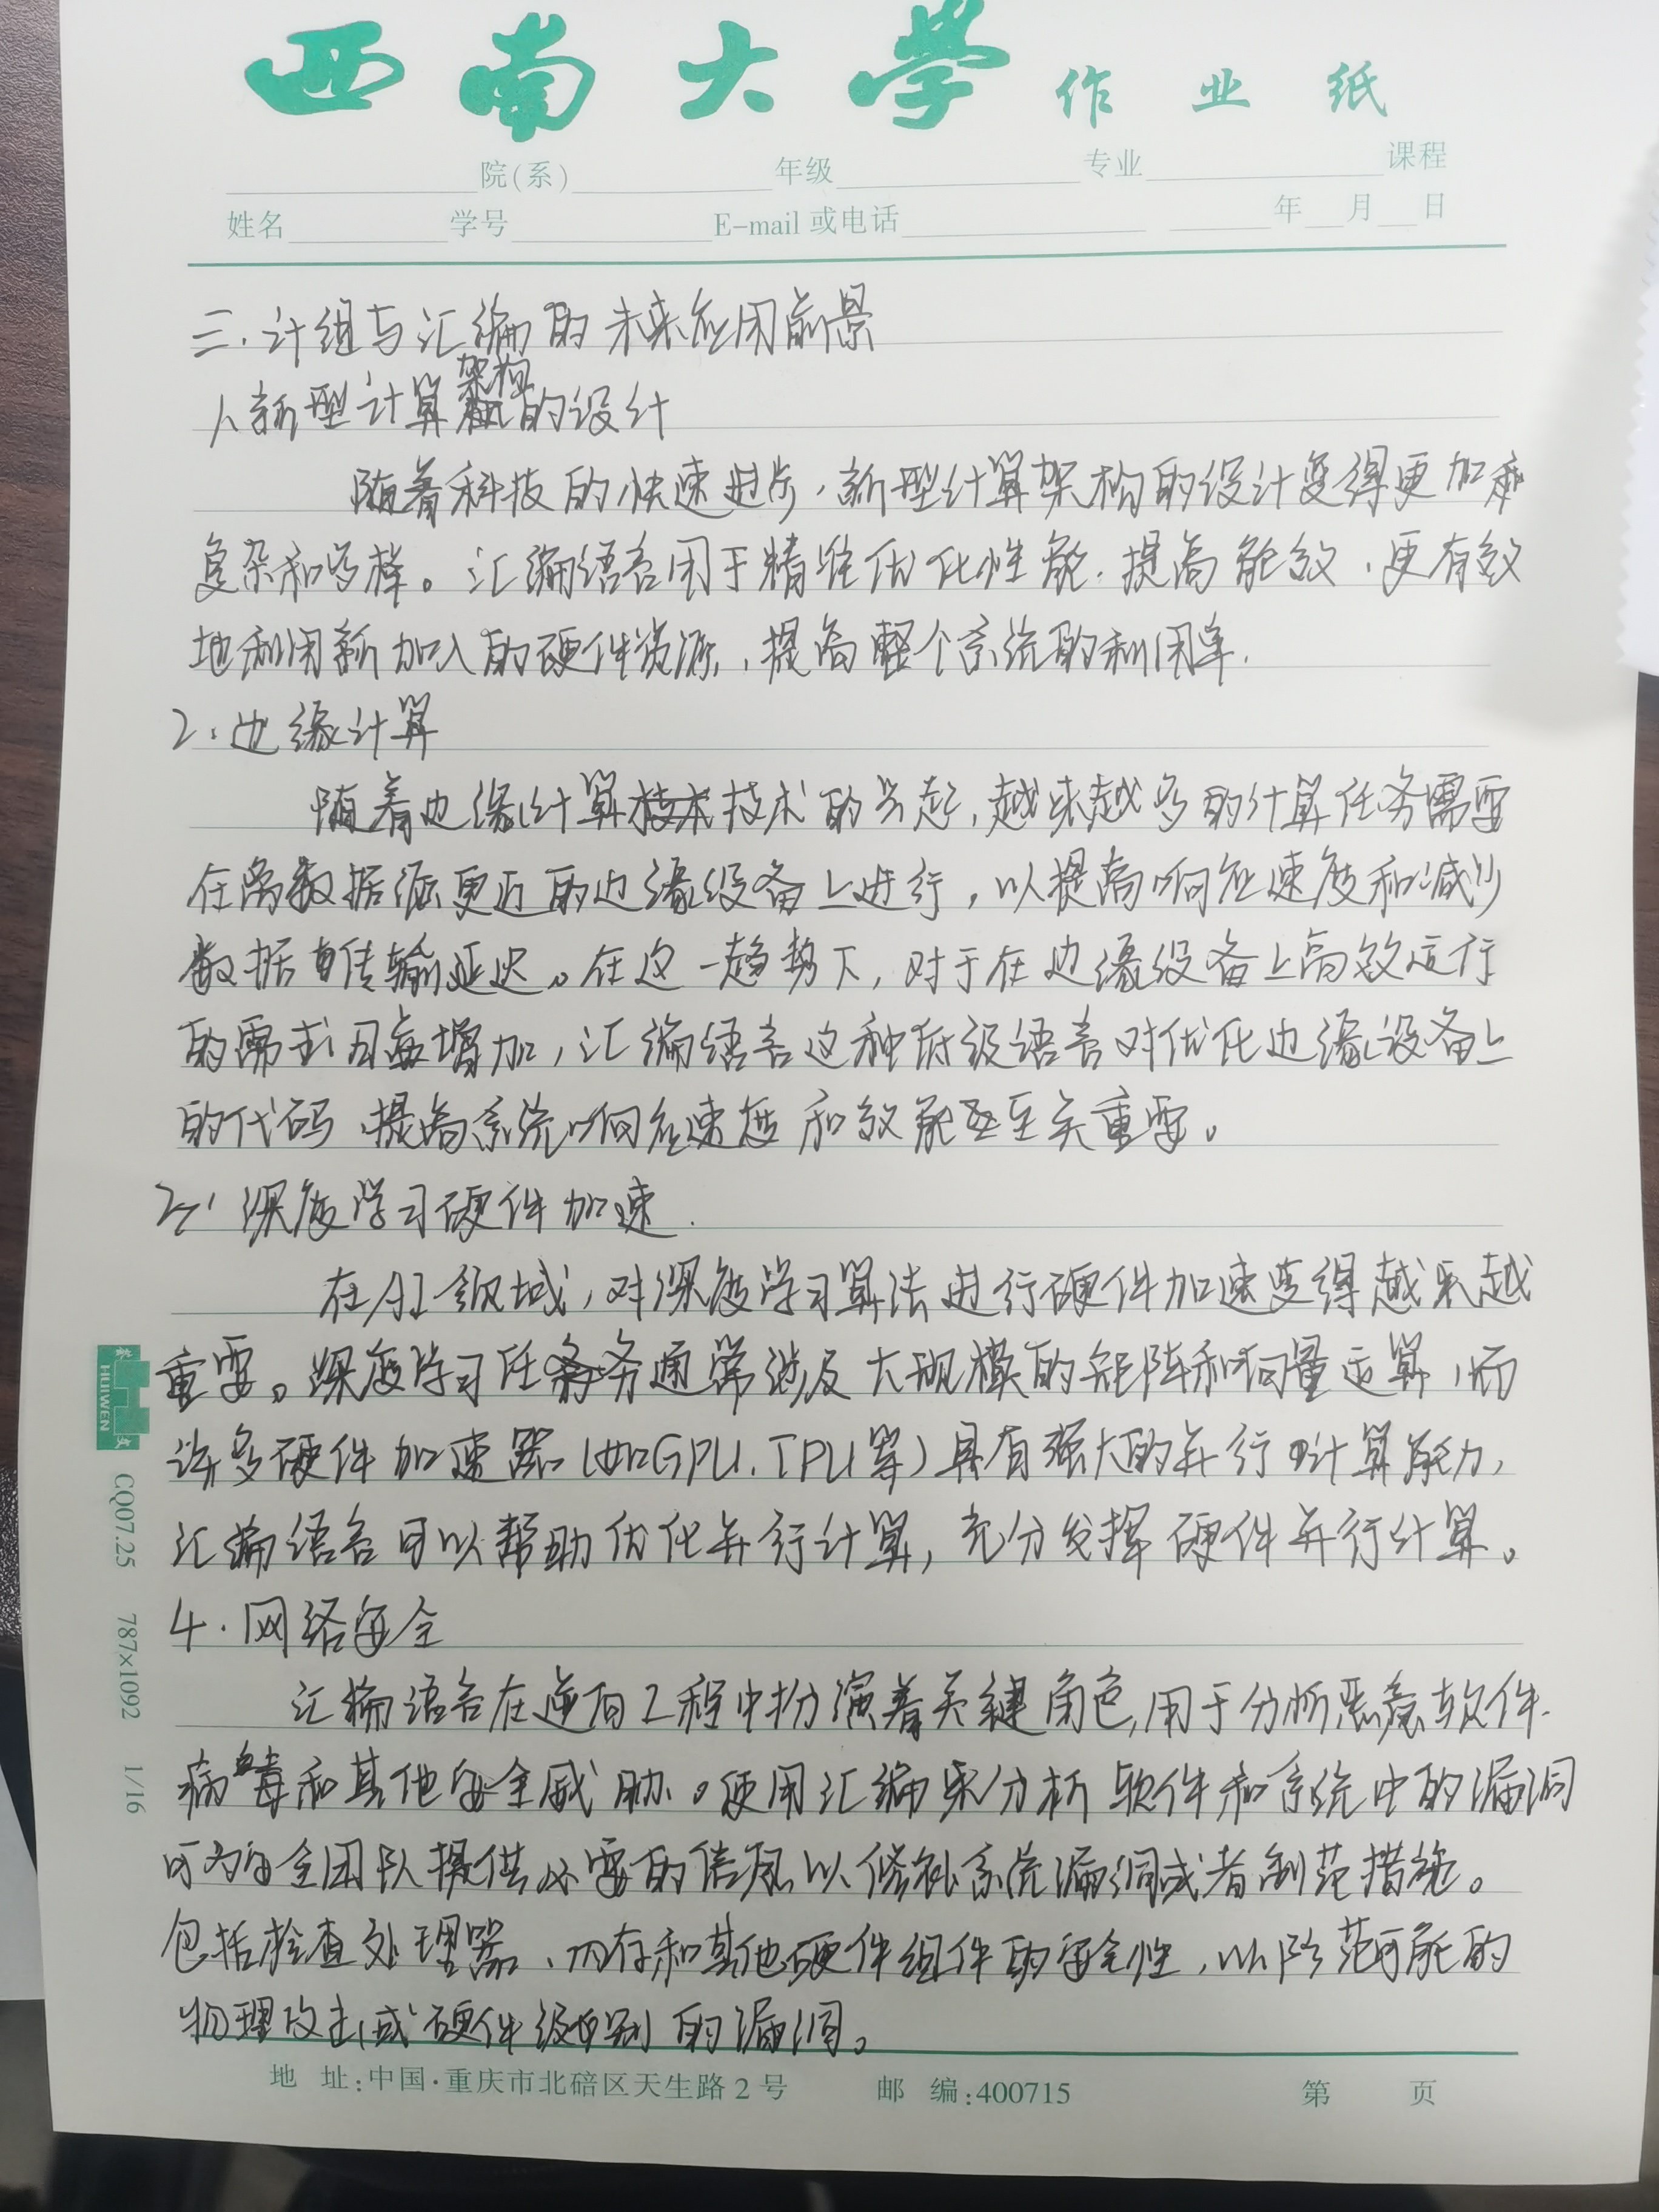 西南大学作业纸
院(系) 年级 专业 课程
姓名 学号 E-mail 或电话 年 月 日
三.计组与汇编的未来应用前景
1.新型计算架构的设计
随着科技的快速进步,新型计算架构的设计变得更加
复杂和多样。汇编语言用于精准优化性能、提高能效,更有效
地利用新加入的硬件资源,提高整个系统的利用率.
2.边缘计算
随着边缘计算技术的兴起,越来越多的计算任务需要
在离数据源更近的边缘设备上进行,以提高响应速度和减少
数据传输延迟。在这一趋势下,对于在边缘设备上高效运行
的需求日益增加,汇编语言这种低级语言对优化边缘设备上
的代码、提高系统响应速度和效能至关重要。
3.深度学习硬件加速.
在AI领域,对深度学习算法进行硬件加速变得越来越
重要。深度学习任务通常涉及大规模的矩阵和向量运算,而
许多硬件加速器(如GPU、TPU等)具有强大的并行计算能力,
汇编语言可以帮助优化并行计算,充分发挥硬件并行计算。
4.网络安全
汇编语言在逆向工程中扮演着关键角色,用于分析恶意软件、
病毒和其他安全威胁。使用汇编来分析软件和系统中的漏洞
可为安全团队提供必要的信息以修补系统漏洞或者制范措施。
包括检查处理器、内存和其他硬件组件的安全性,以防范可能的
物理攻击或硬件级别的漏洞。
地 址:中国·重庆市北碚区天生路2号 邮 编:400715 第 页
HUIWEN CQ07.25 787×1092 1/16